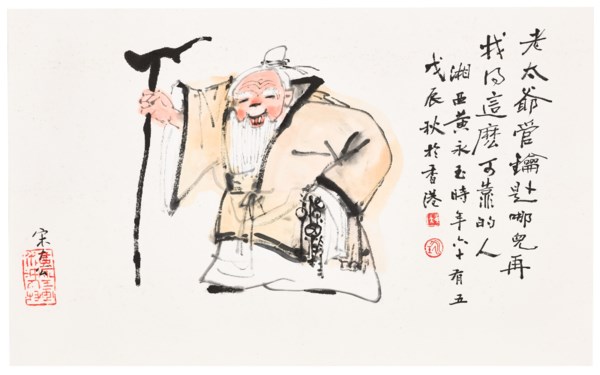 老太爺管鑰匙哪兒再
找得這麼可靠的人
湘西黃永玉時年六十有五
戊辰秋於香港